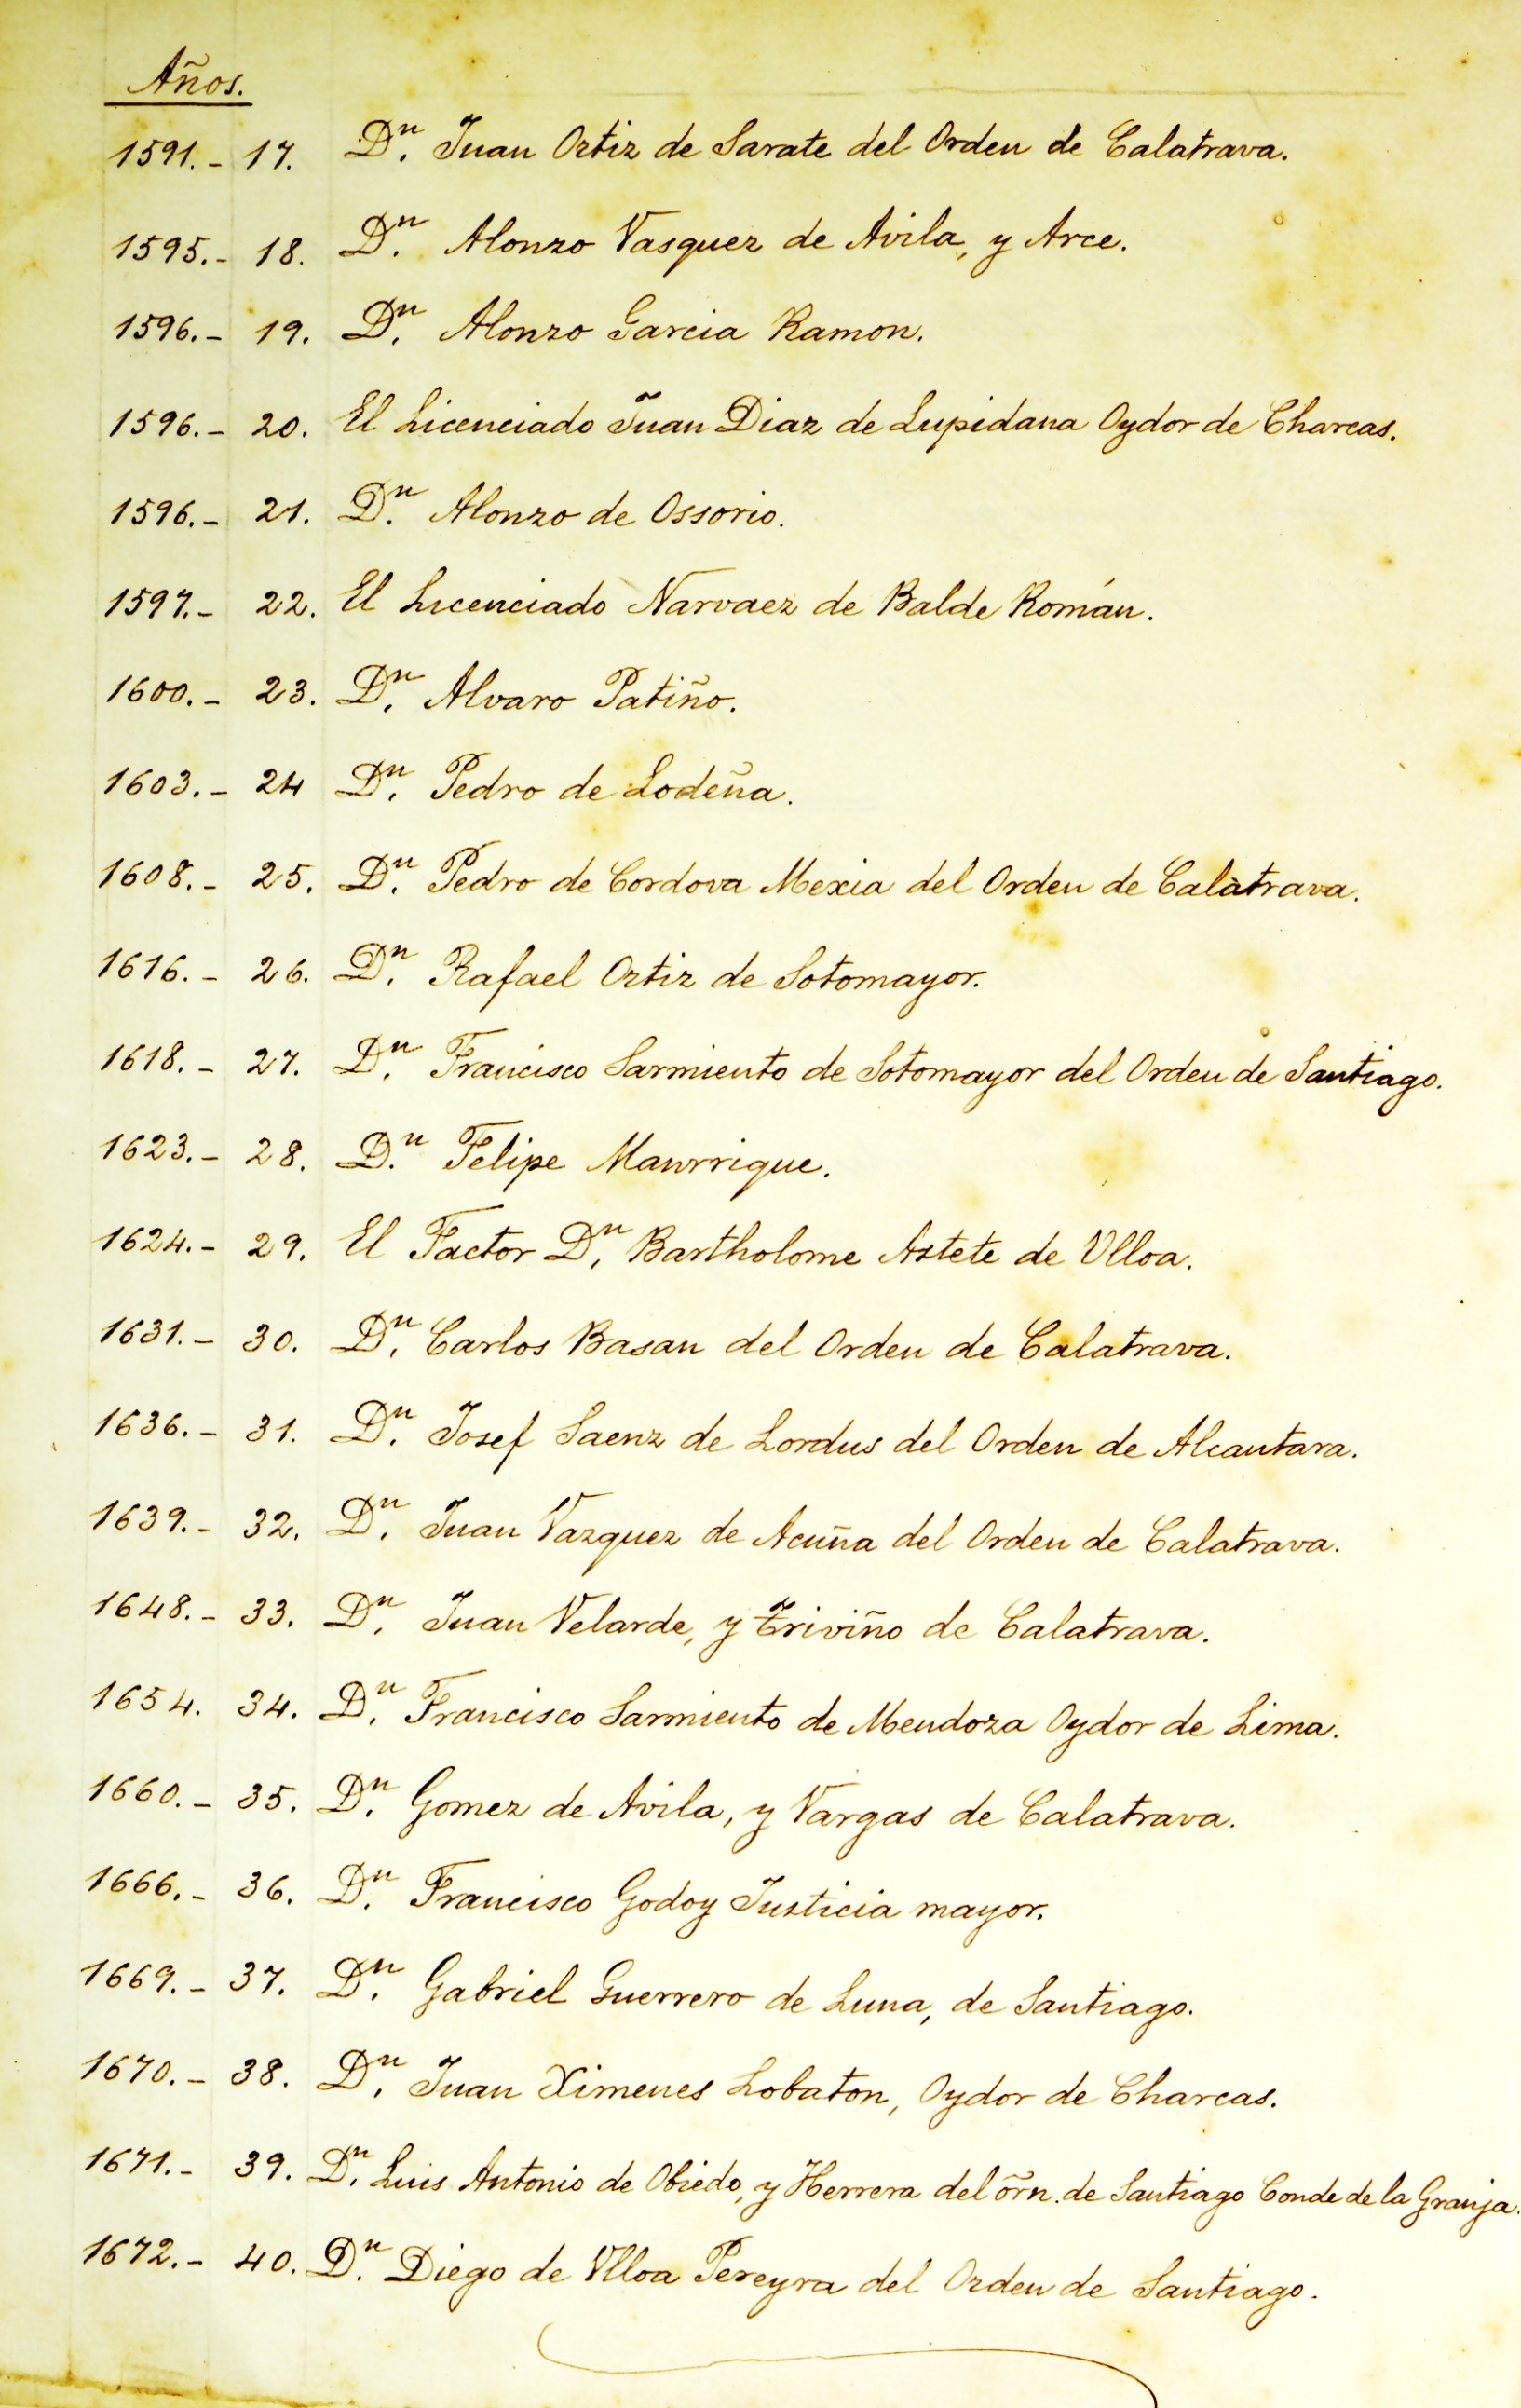 Años.
1591.- 17. Dn. Juan Ortiz de Sarate del Orden de Calatrava.
1595.- 18. Dn. Alonzo Vasquez de Avila, y Arce.
1596.- 19. Dn. Alonzo Garcia Ramon.
1596.- 20. El Licenciado Juan Diaz de Lupidana Oydor de Charcas.
1596.- 21. Dn. Alonzo de Ossorio.
1597.- 22. El Licenciado Narvaez de Balde Román.
1600.- 23. Dn. Alvaro Patiño.
1603.- 24 Dn. Pedro de Lodeña.
1608.- 25. Dn. Pedro de Cordova Mexia del Orden de Calatrava.
1616.- 26. Dn. Rafael Ortiz de Sotomayor.
1618.- 27. Dn. Francisco Sarmiento de Sotomayor del Orden de Santiago.
1623.- 28. Dn. Felipe Manrrique.
1624.- 29. El Factor Dn. Bartholome Astete de Ulloa.
1631.- 30. Dn. Carlos Basan del Orden de Calatrava.
1636.- 31. Dn. Josef Saenz de Lordus del Orden de Alcantara.
1639.- 32. Dn. Juan Vazquez de Acuña del Orden de Calatrava.
1648.- 33. Dn. Juan Velarde, y Triviño de Calatrava.
1654. 34. Dn. Francisco Sarmiento de Mendoza Oydor de Lima.
1660.- 35. Dn. Gomez de Avila, y Vargas de Calatrava.
1666.- 36. Dn. Francisco Godoy Justicia mayor.
1669.- 37. Dn. Gabriel Guerrero de Luna, de Santiago.
1670.- 38. Dn. Juan Ximenes Lobaton, Oydor de Charcas.
1671.- 39. Dn. Luis Antonio de Obiedo, y Herrera del õrn. de Santiago Conde de la Granja.
1672.- 40. Dn. Diego de Ulloa Pereyra del Orden de Santiago.